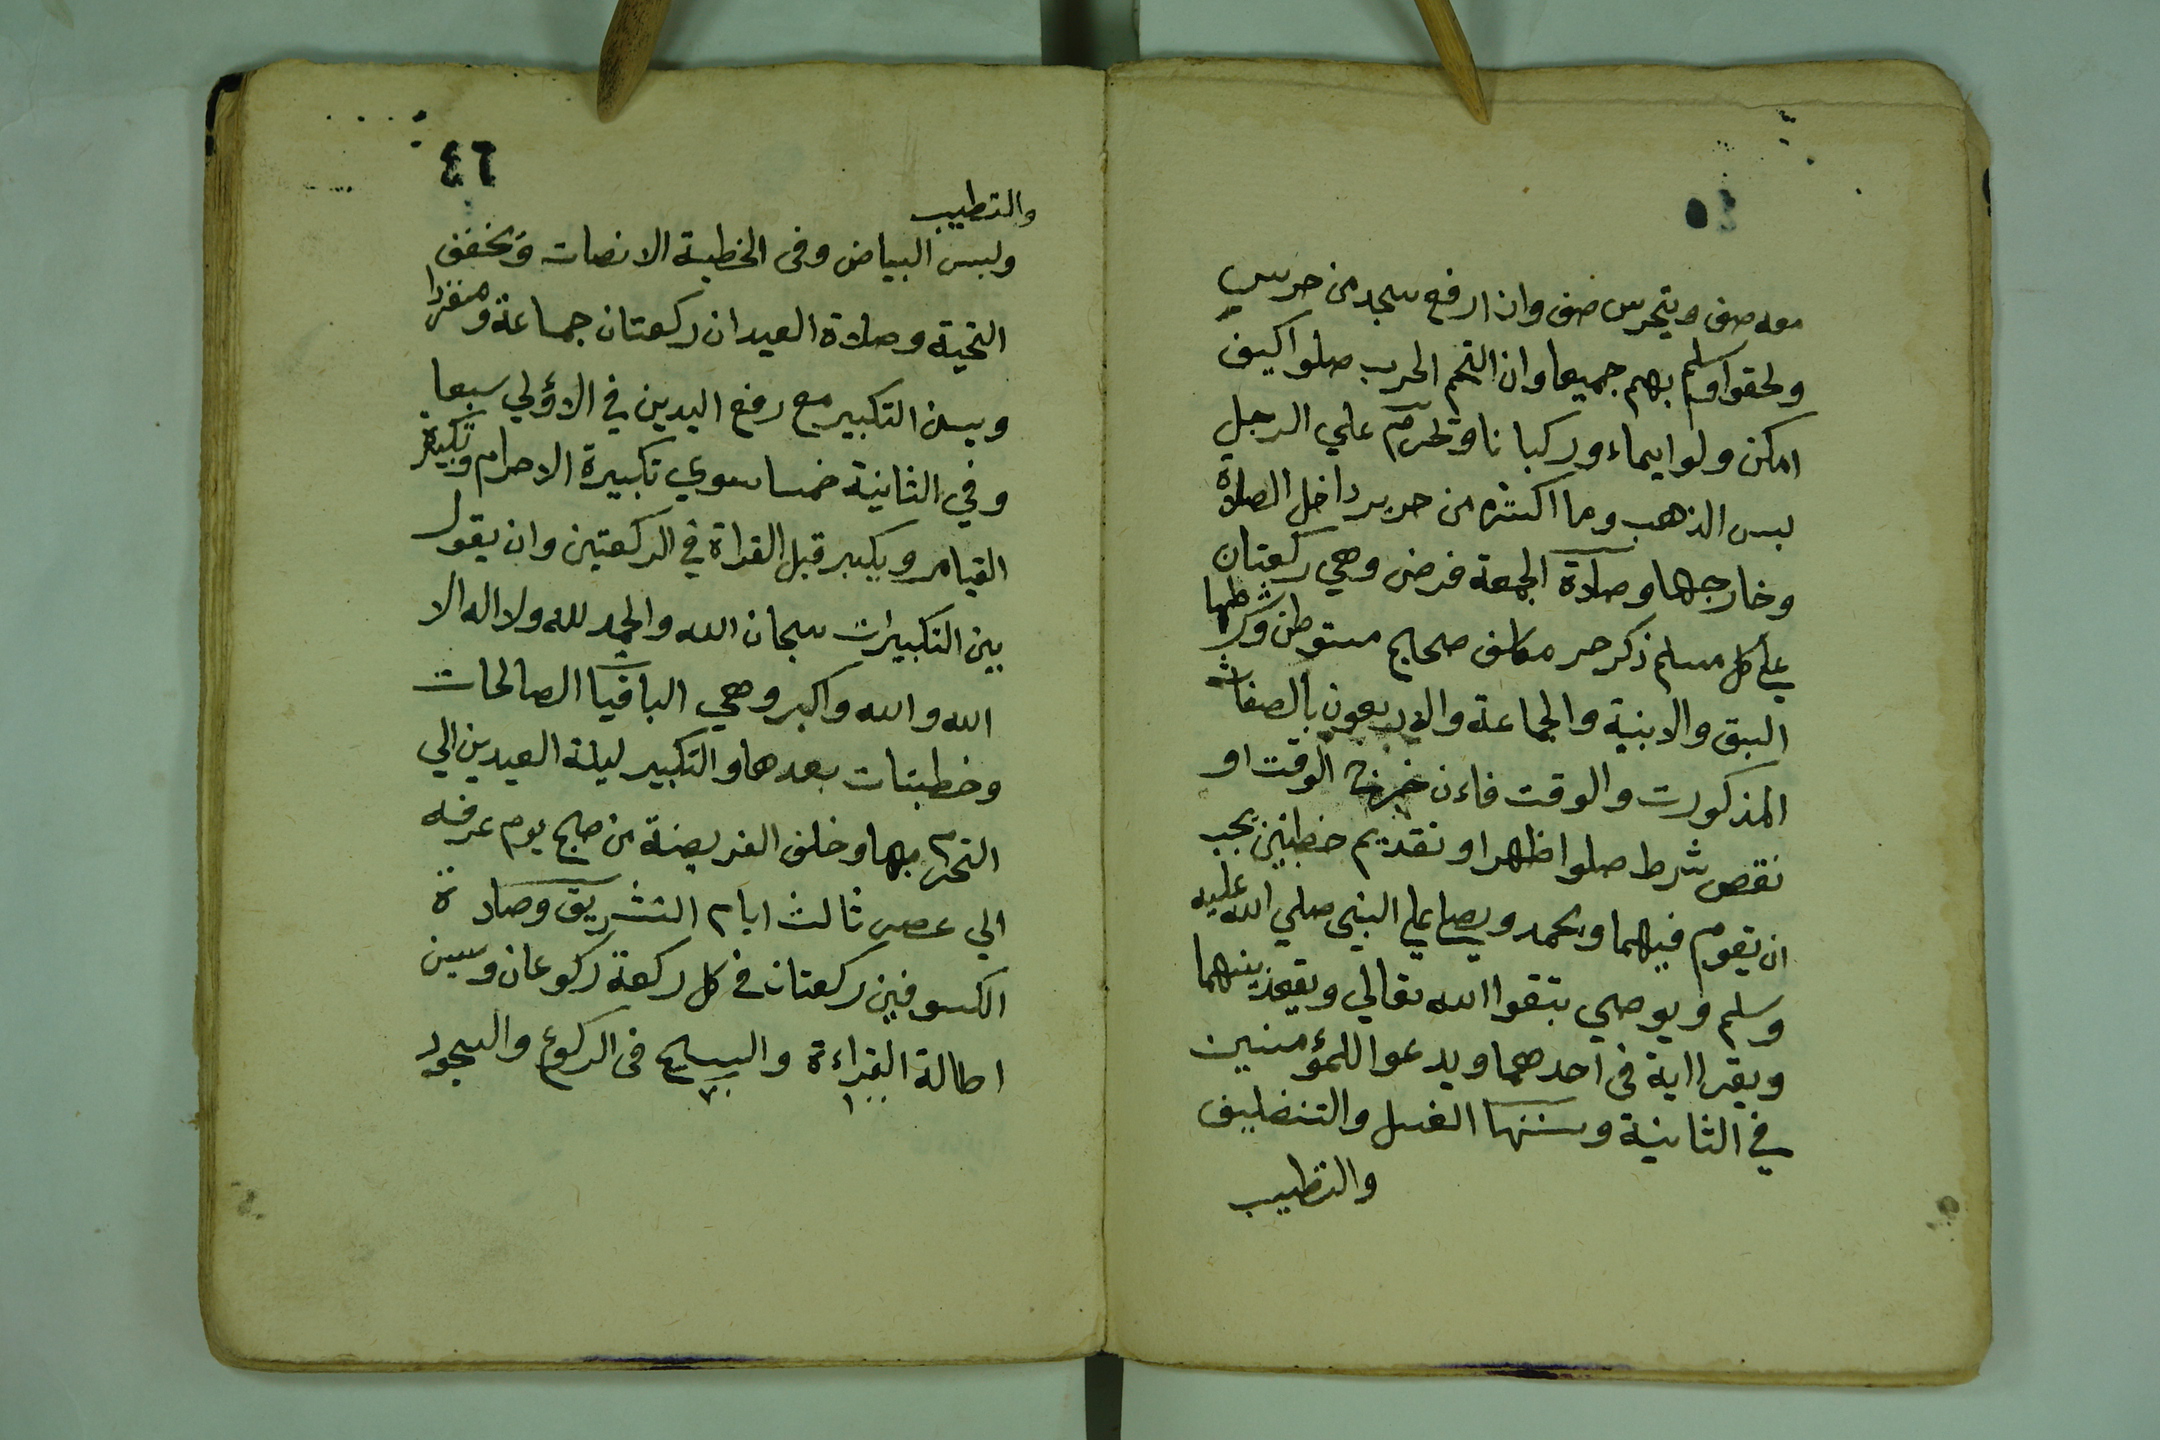 ٤٥
معه صف ويتحرس صف وان ارفع سجد من حرس
ولحقوا وسلم بهم جميعا وان التحم الحرب صلوا كيف
امكن ولو ايماء وركبانا وتحرم علي الرجل
لبس الذهب وما اكثره من حرير داخل الصلاة
وخارجها وصلاة الجمعة فرض وهي ركعتان
علي كل مسلم ذكر حر مكلف صحيح مستوطن وشرطها
البق والابنية والجماعة والاربعون بالصفات
المذكورت والوقت فاءن خرج الوقت او
نقص شرط صلوا ظهرا و تقديم خطبتين يجب
ان يقوم فيهما ويحمد ويصلي علي النبي صلي الله عليه
وسلم ويوصي بتقوا الله تعالي ويقعد بينهما
ويقرا اية في احدهما ويدعوا للمؤمنين
في الثانية وسننها الغسل والتنضليف
والتطيب
٤٦
والتطيب
ولبس البياض وفي الخطبة الانصات وتخفف
التحية وصلاة العيدان ركعتان جماعة ومنفردا
ويسن التكبير مع رفع اليدين في الاولي سبعا
وفي الثانية خمسا سوي تكبيرة الاحرام وتكبيرة
القيام ويكبر قبل القراة في الركعتين وان يقول
بين التكبيرات سبحان الله والحمد لله ولا اله الا
الله والله واكبر وهي الباقيا الصالحات
وخطبتات بعدها والتكبير ليلة العيدين الي
التحرم بها وخلف الفريضة من صبح يوم عرفه
الي عصر ثالث ايام التشريق وصلاة
الكسوفين ركعتان في كل ركعة ركوعان وسين
اطالة القراءة والتسبيح في الركوع والسجود